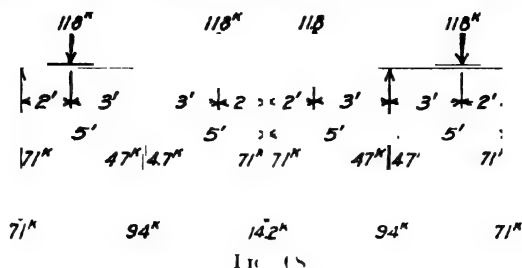 118ᴷ 118ᴷ 118 118ᴷ
2' 3' 3' 2 2' 3' 3' 2'
5' 5' 5' 5'
71ᴷ 47ᴷ 47ᴷ 71ᴷ 71ᴷ 47ᴷ 47' 71'
71ᴷ 94ᴷ 142ᴷ 94ᴷ 71ᴷ